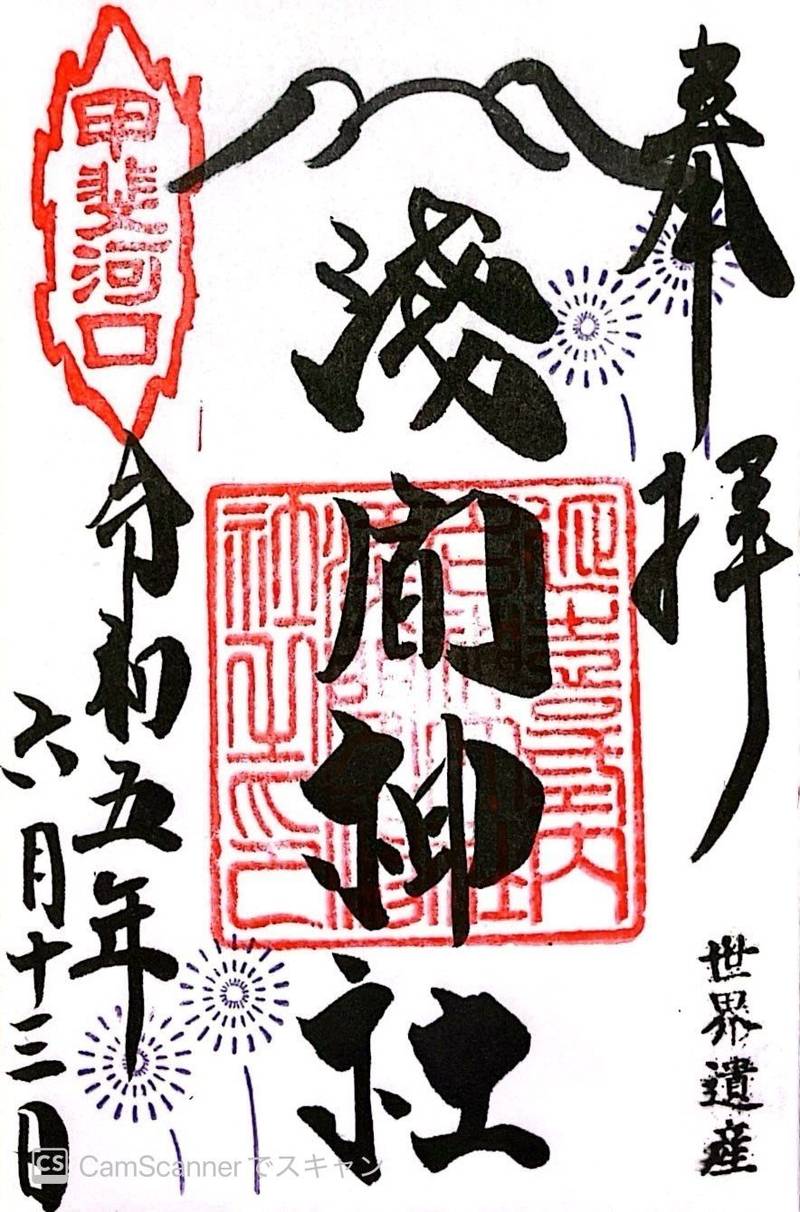 奉拝
世界遺産
淺間神社
甲斐河口
令和五年
六月十三日
CS CamScannerでスキャン